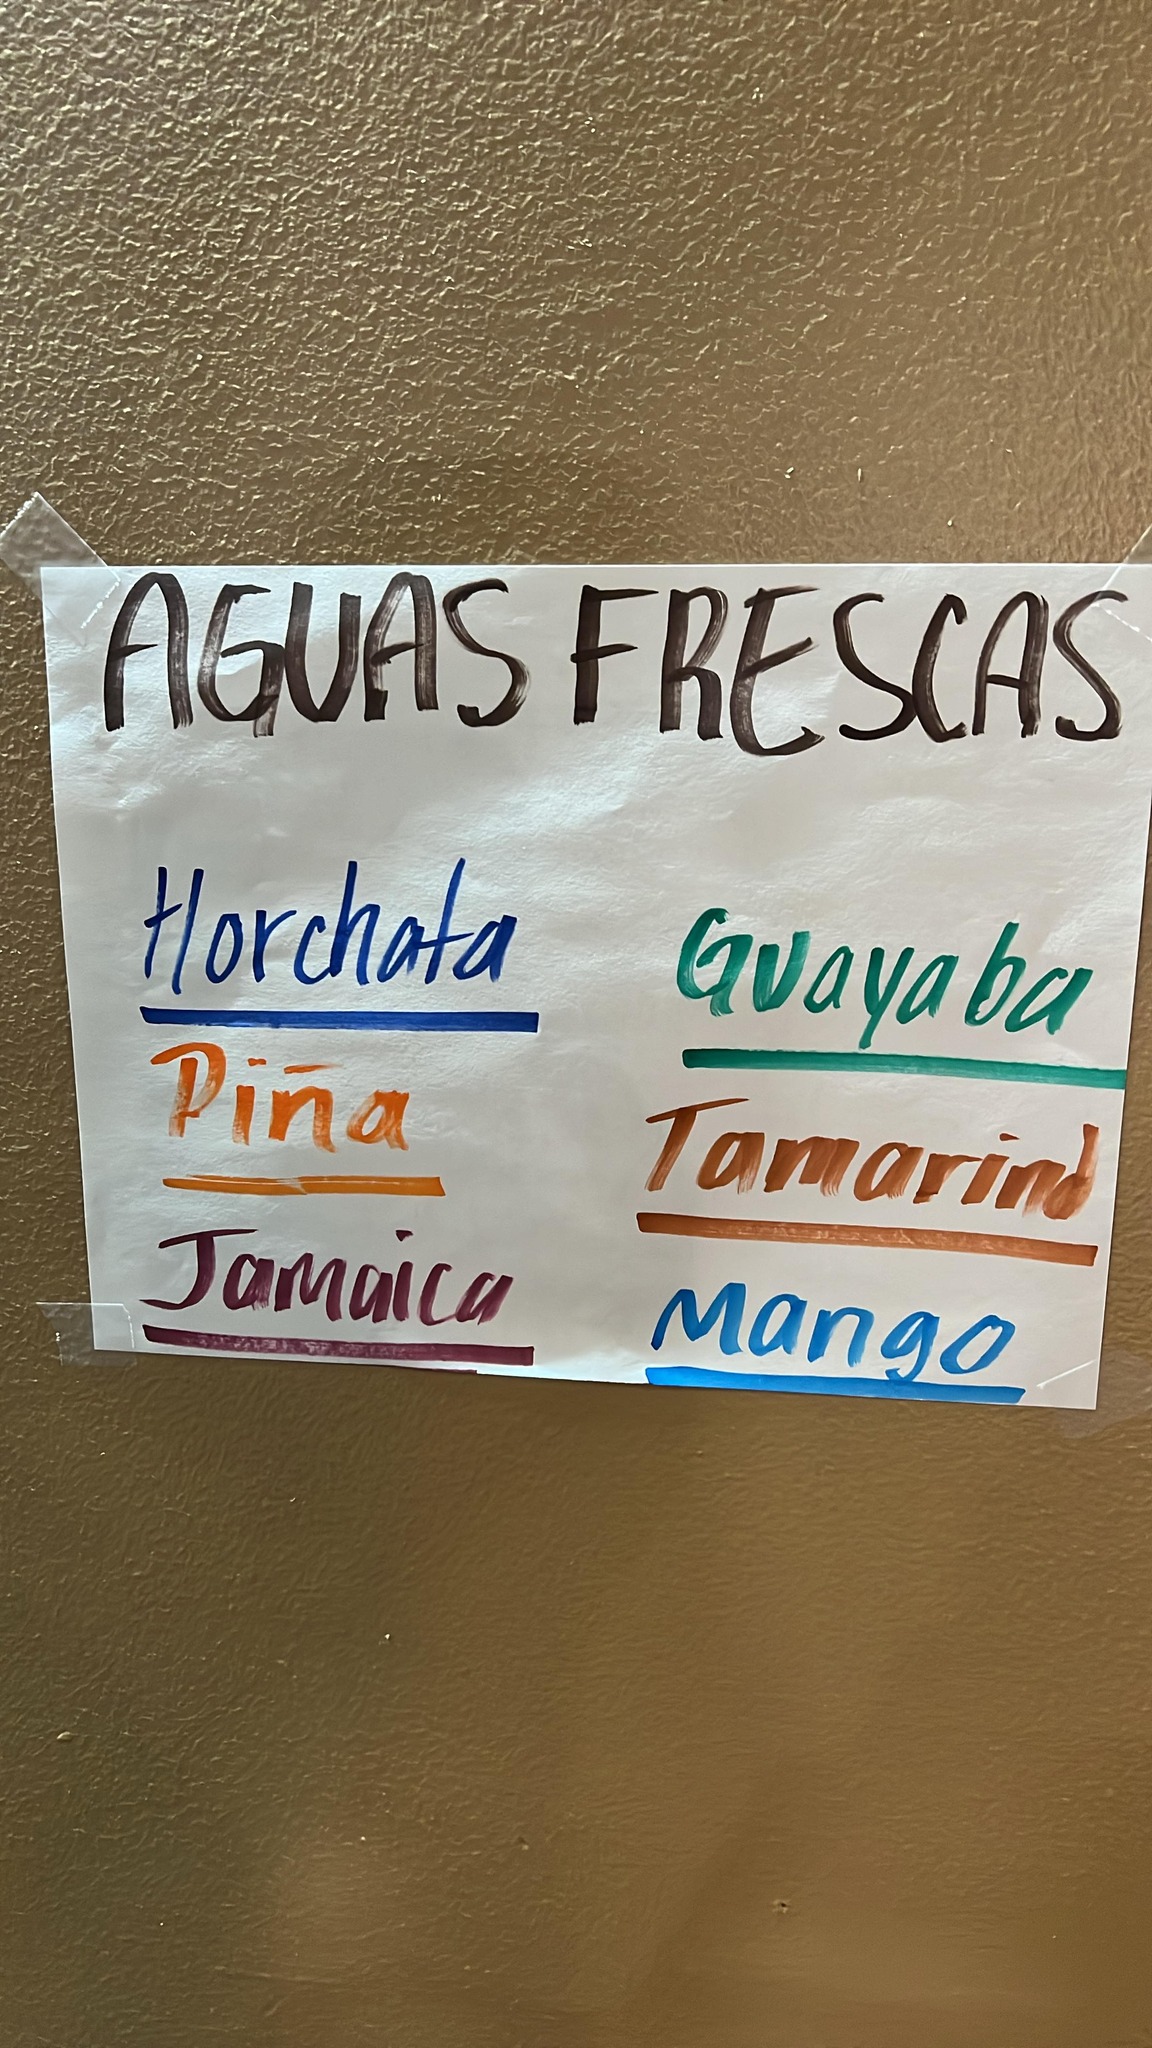 AGUAS FRESCAS
Horchata
Piña
Jamaica
Guayaba
Tamarind
Mango